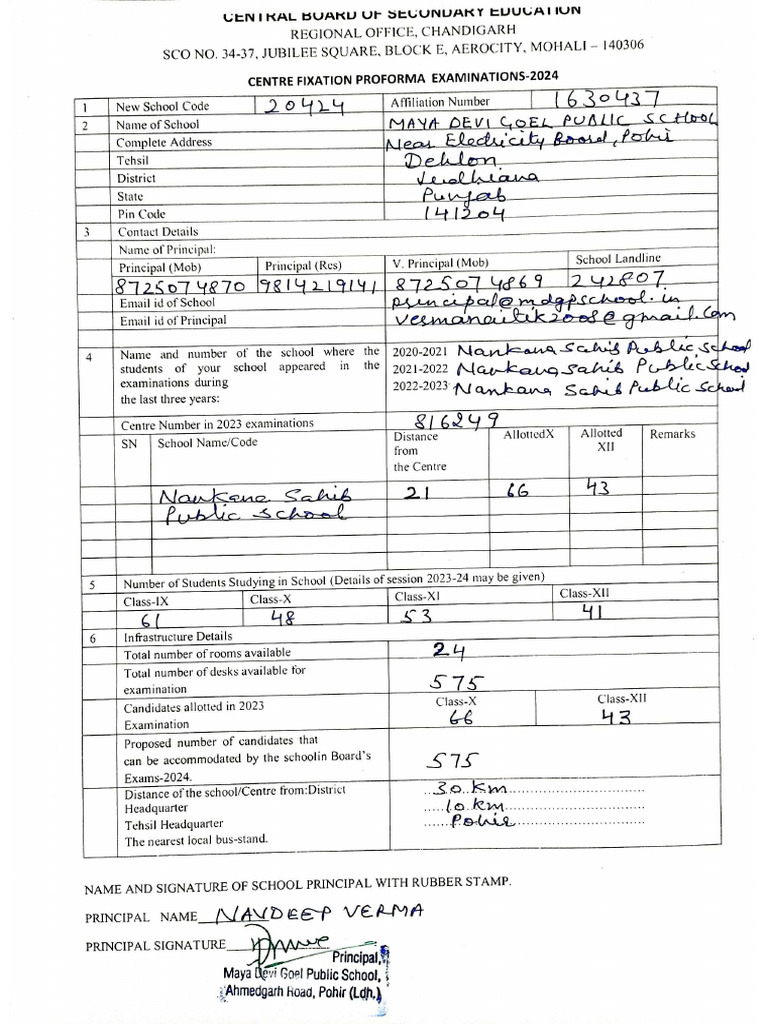 CENTRAL BOARD OF SECONDARY EDUCATION
REGIONAL OFFICE, CHANDIGARH
SCO NO. 34-37, JUBILEE SQUARE, BLOCK E, AEROCITY, MOHALI – 140306
CENTRE FIXATION PROFORMA EXAMINATIONS-2024
1 New School Code 20424 Affiliation Number 1630437
2 Name of School MAYA DEVI GOEL PUBLIC SCHOOL
Complete Address Near Electricity Board, Pohir
Tehsil Dehlon
District Ludhiana
State Punjab
Pin Code 141204
3 Contact Details
Name of Principal:
Principal (Mob) Principal (Res) V. Principal (Mob) School Landline
8725074870 9814219141 8725074869 242807
Email id of School principal@mdgpschool.in
Email id of Principal
4 Name and number of the school where the 2020-2021 Nankana Sahib Public School
students of your school appeared in the 2021-2022 Nankana Sahib Public School
examinations during 2022-2023 Nankana Sahib Public School
the last three years:
Centre Number in 2023 examinations 816249
SN School Name/Code Distance from the Centre AllottedX Allotted XII Remarks
Nankana Sahib 21 66 43
Public School
5 Number of Students Studying in School (Details of session 2023-24 may be given)
Class-IX Class-X Class-XI Class-XII
61 48 53 41
6 Infrastructure Details
Total number of rooms available 24
Total number of desks available for
examination 575
Candidates allotted in 2023 Class-X Class-XII
Examination 66 43
Proposed number of candidates that
can be accommodated by the schoolin Board's 575
Exams-2024.
Distance of the school/Centre from:District 30 km
Headquarter 10 km
Tehsil Headquarter Pohir
The nearest local bus-stand.
NAME AND SIGNATURE OF SCHOOL PRINCIPAL WITH RUBBER STAMP.
PRINCIPAL NAME NAVDEEP VERMA
PRINCIPAL SIGNATURE
Principal,
Maya Devi Goel Public School,
Ahmedgarh Road, Pohir (Ldh.)